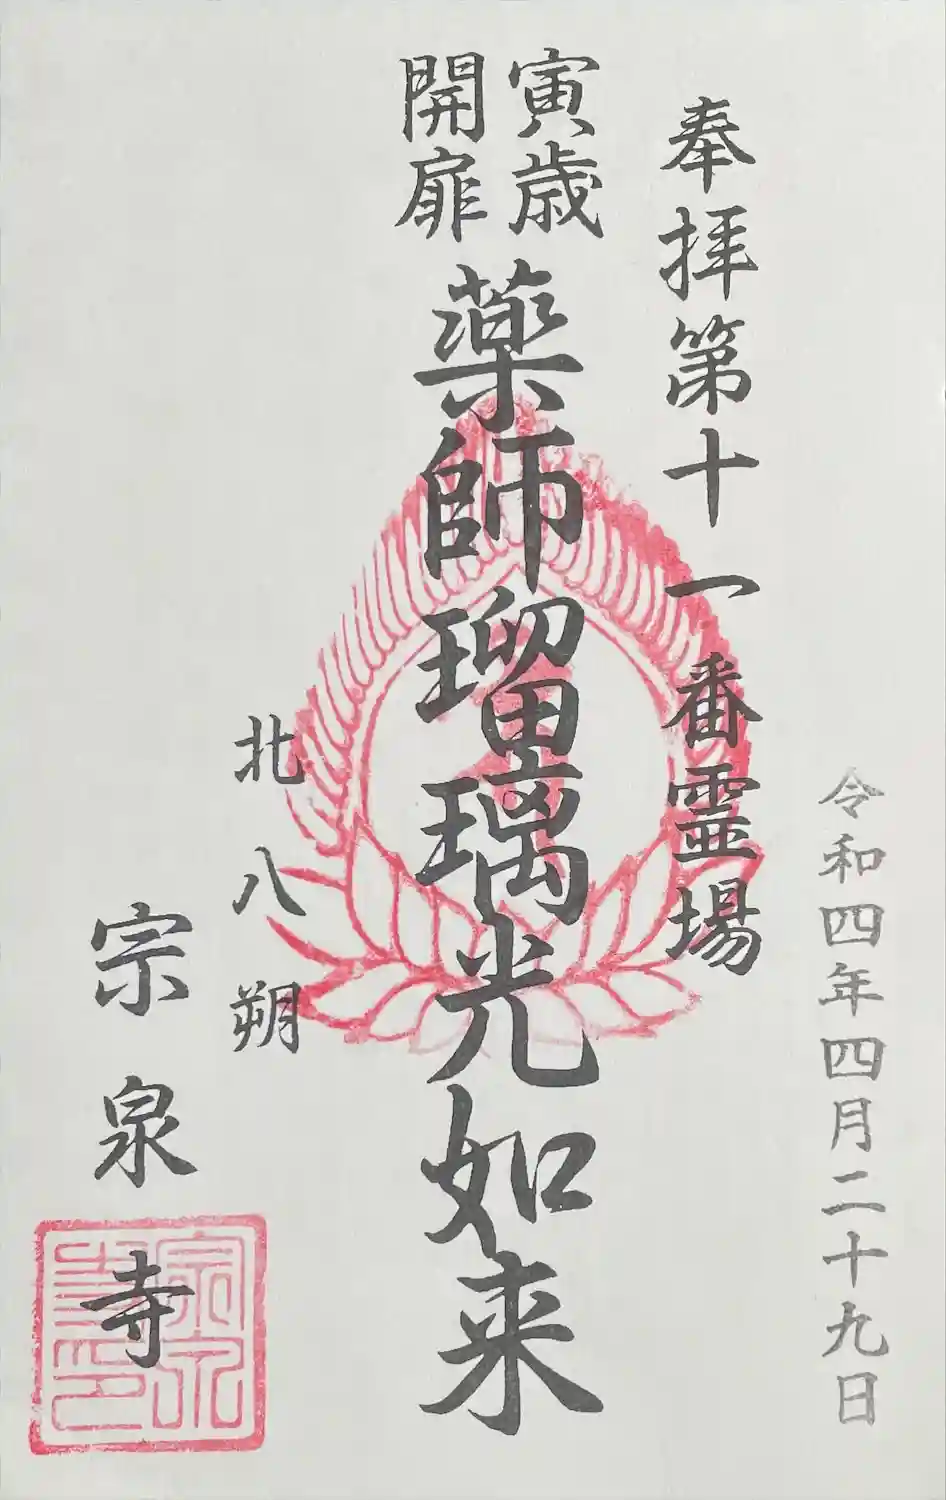 令和四年四月二十九日
奉拝第十一番霊場
寅歳
開扉
薬師瑠璃光如来
北八朔
宗泉寺
宗泉
寺印